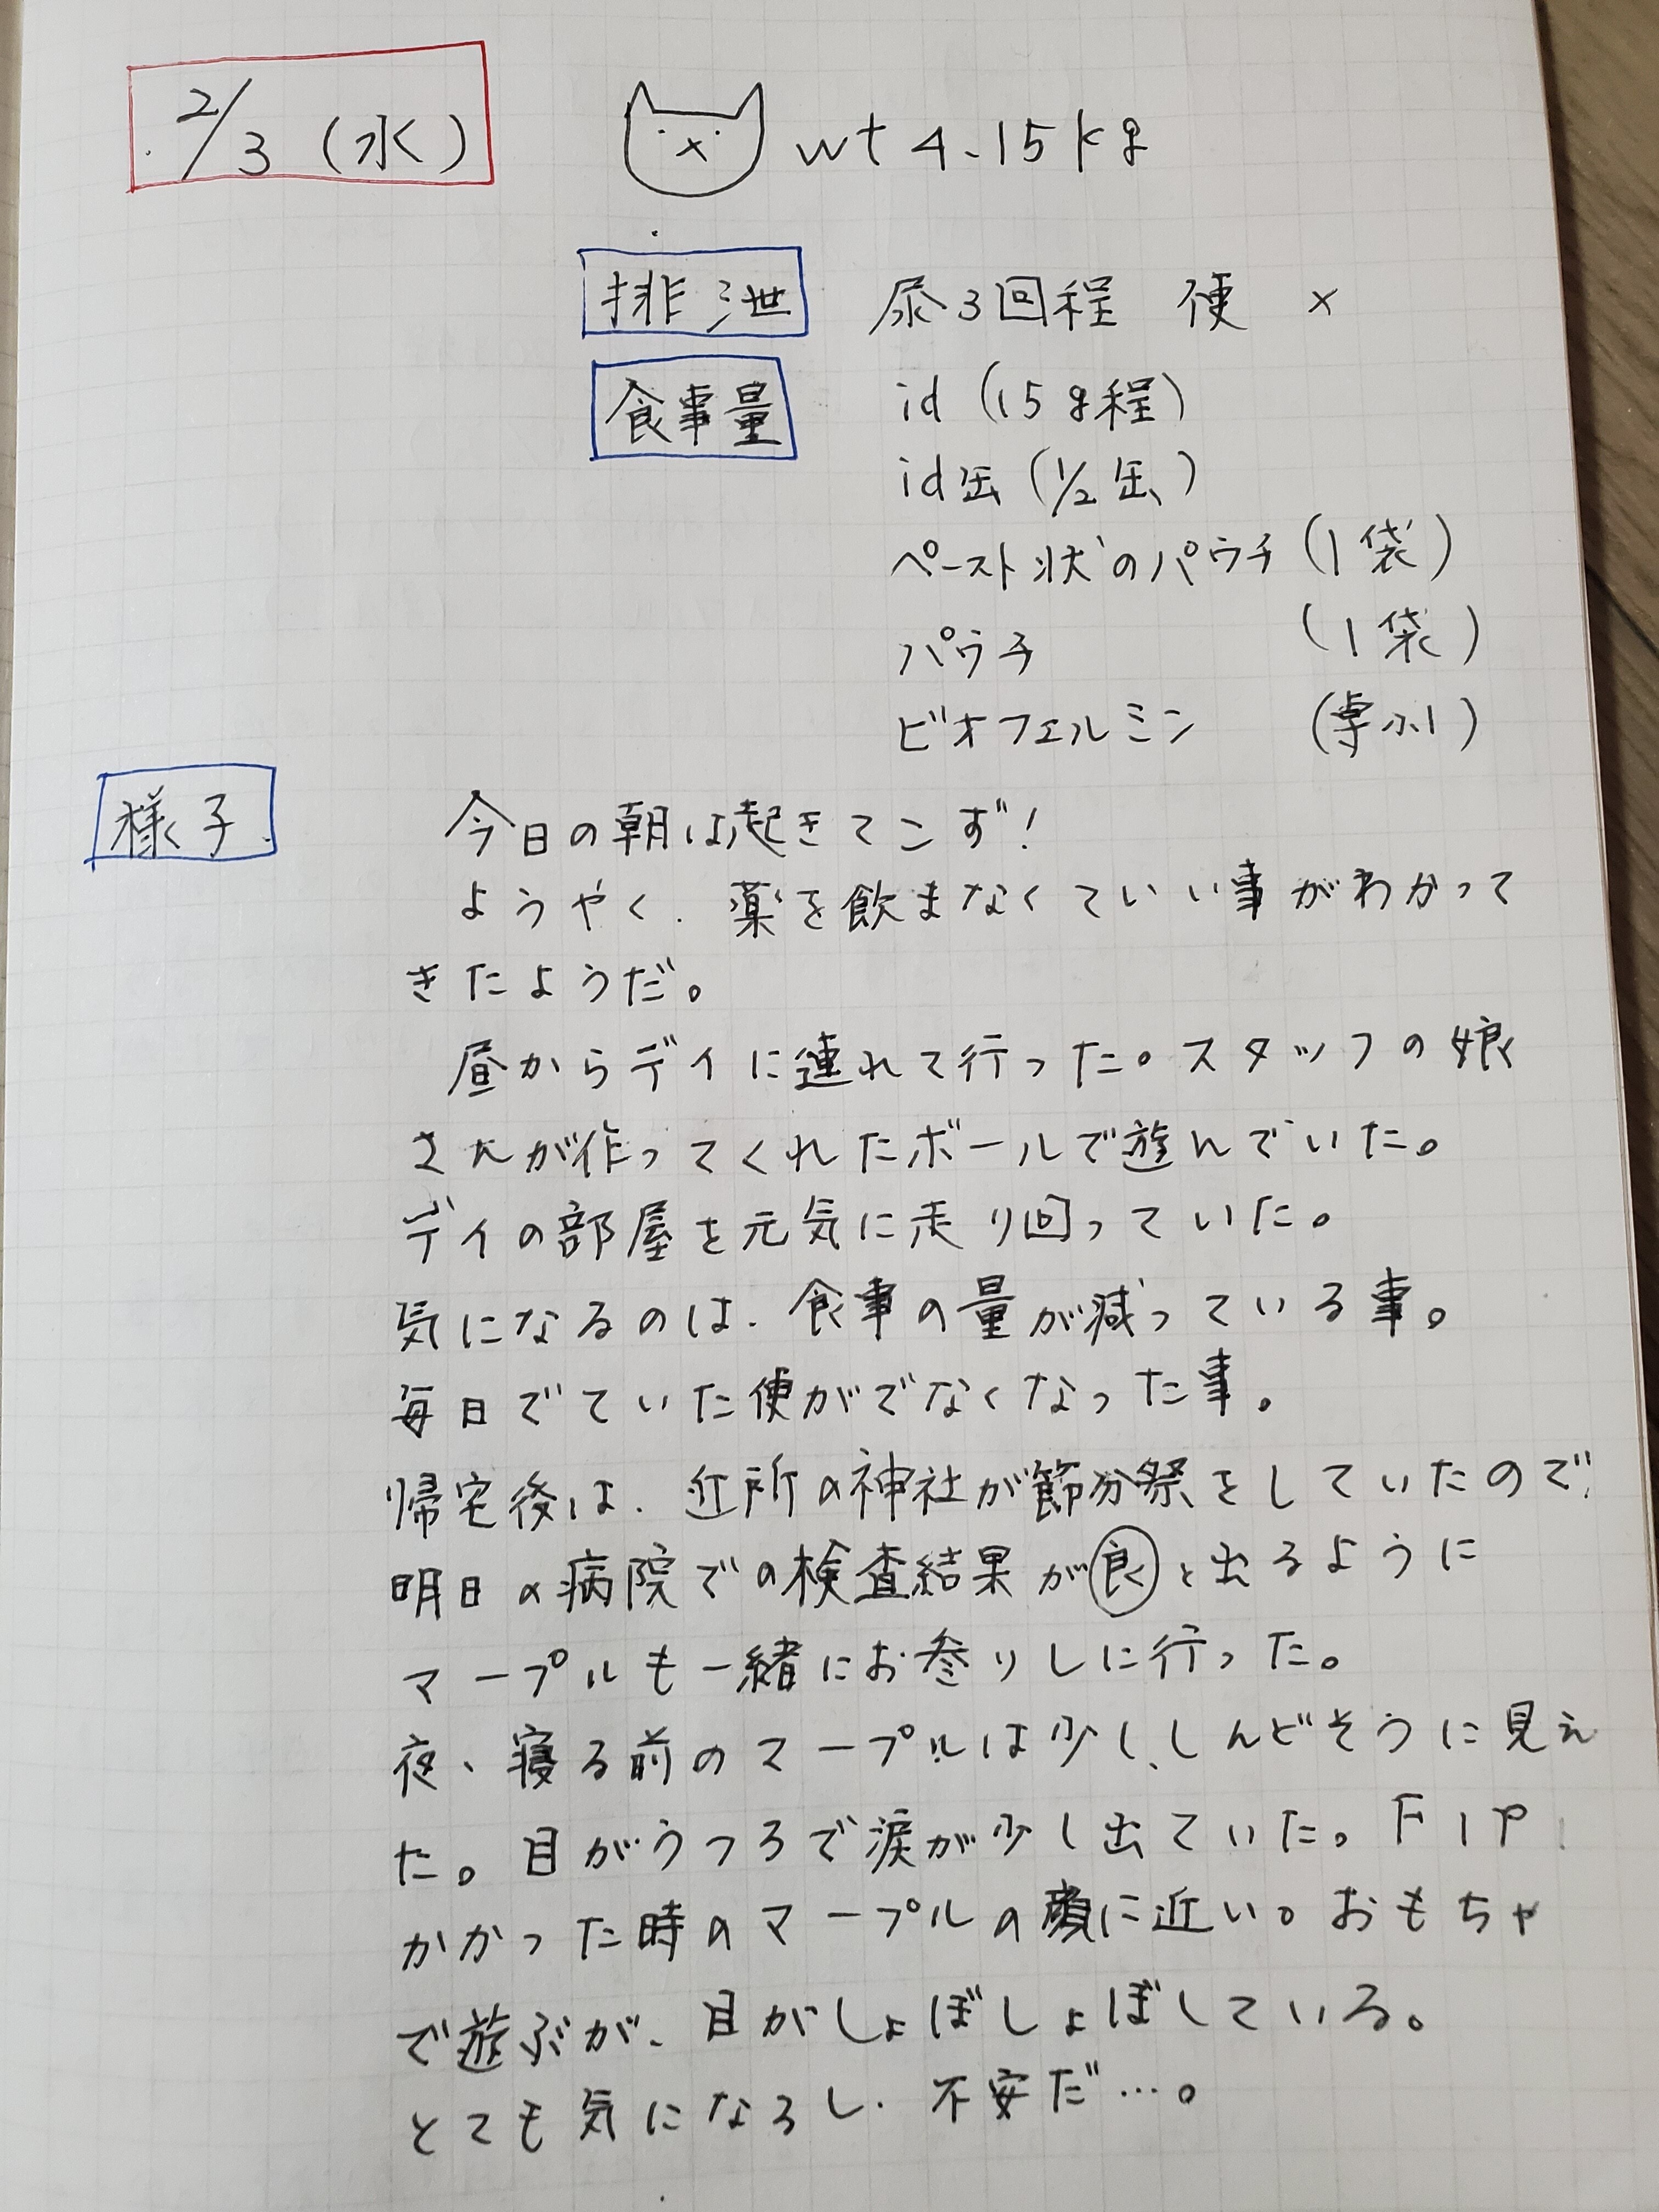 2/3 (水)
wt 4.15kg
排泄 尿3回程 便 ×
食事量 id (15g程)
id缶 (1/2缶)
ペースト状のパウチ (1袋)
パウチ (1袋)
ビオフェルミン
様子 今日の朝は起きてこず!
ようやく、薬を飲まなくていい事がわかって
きたようだ。
昼からデイに連れて行った。スタッフの娘
さんが作ってくれたボールで遊んでいた。
デイの部屋を元気に走り回っていた。
気になるのは、食事の量が減っている事。
毎日でていた便がでなくなった事。
帰宅後は、近所の神社が節分祭をしていたので、
明日の病院での検査結果が良と出るように
マープルも一緒にお参りしに行った。
夜、寝る前のマープルは少し、しんどそうに見え
た。目がうつろで涙が少し出ていた。FIP
かかった時のマープルの顔に近い。おもちゃ
で遊ぶが、目がしょぼしょぼしている。
とても気になるし、不安だ…。